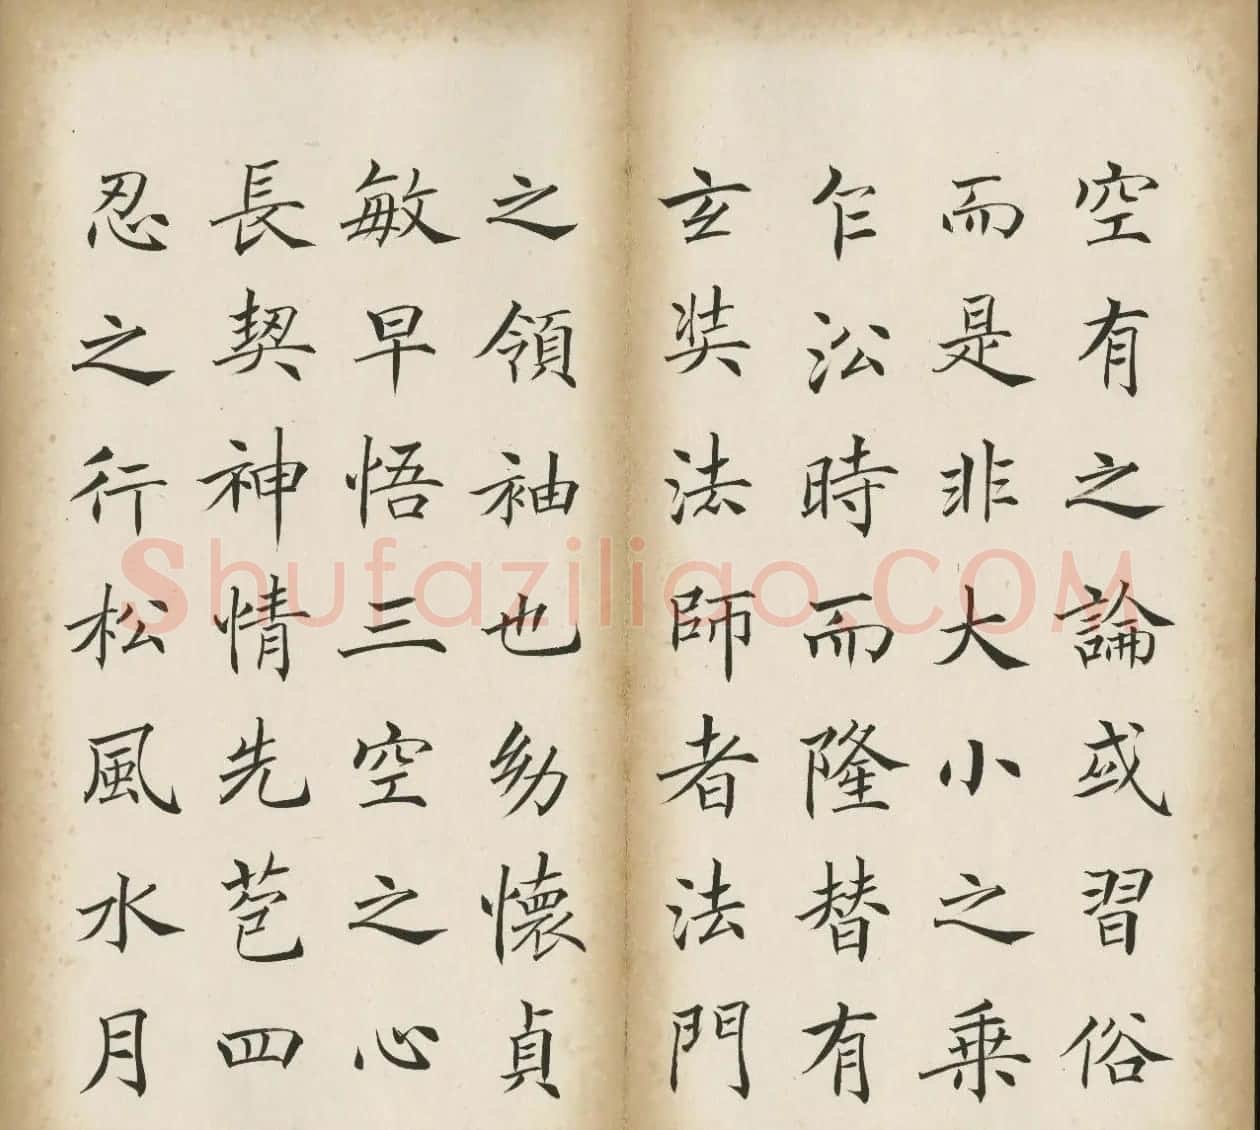 空有之論或習俗
而是非大小之乗
乍沿時而隆替有
玄奘法師者法門
之領袖也幼懷貞
敏早悟三空之心
長契神情先苞四
忍之行松風水月
Shufaziliao.COM